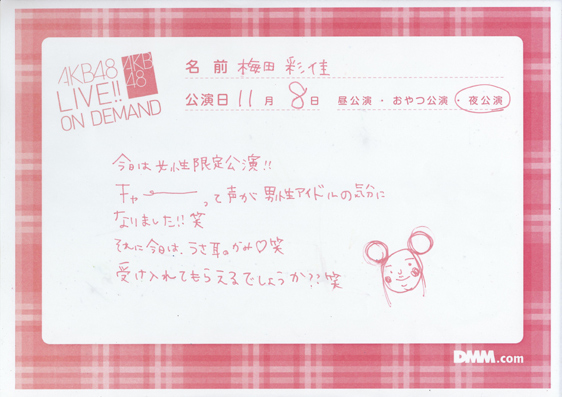 AKB48
LIVE!!
ON DEMAND
AKB
48
名 前 梅田 彩佳
公演日 11 月 8 日 昼公演 ・ おやつ公演 ・ 夜公演
今日は女性限定公演!!
キャーーって声が男性アイドルの気分に
なりました!!笑
それに今日は、うさ耳のがみ♡笑
受け入れてもらえるでしょうか??笑
DMM.com